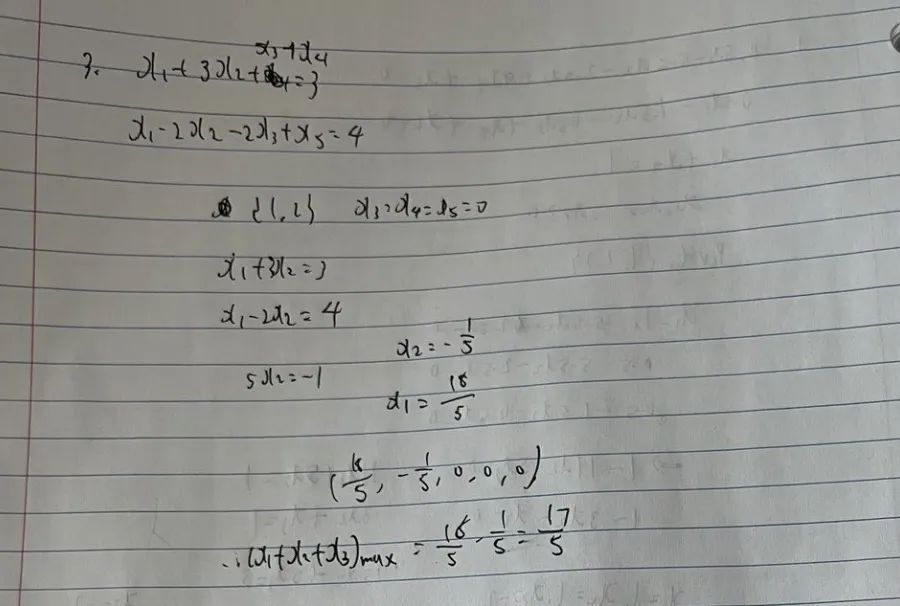 3. x₁+3x₂+x₃+x₄=3
x₁-2x₂-2x₃+x₅=4
{1,2} x₃=x₄=x₅=0
x₁+3x₂=3
x₁-2x₂=4
x₂=-1/5
5x₂=-1
x₁=18/5
(18/5, -1/5, 0, 0, 0)
∴(x₁+x₂+x₃)max = 18/5 - 1/5 = 17/5